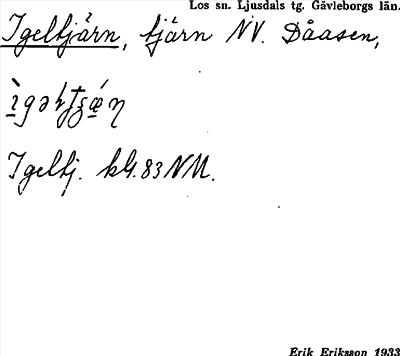 Los sn. Ljusdals tg. Gävleborgs län.
Igeltjärn, tjärn NV. Dåasen,
Igeltj. kbl. 83 NM.
Erik Eriksson 1933